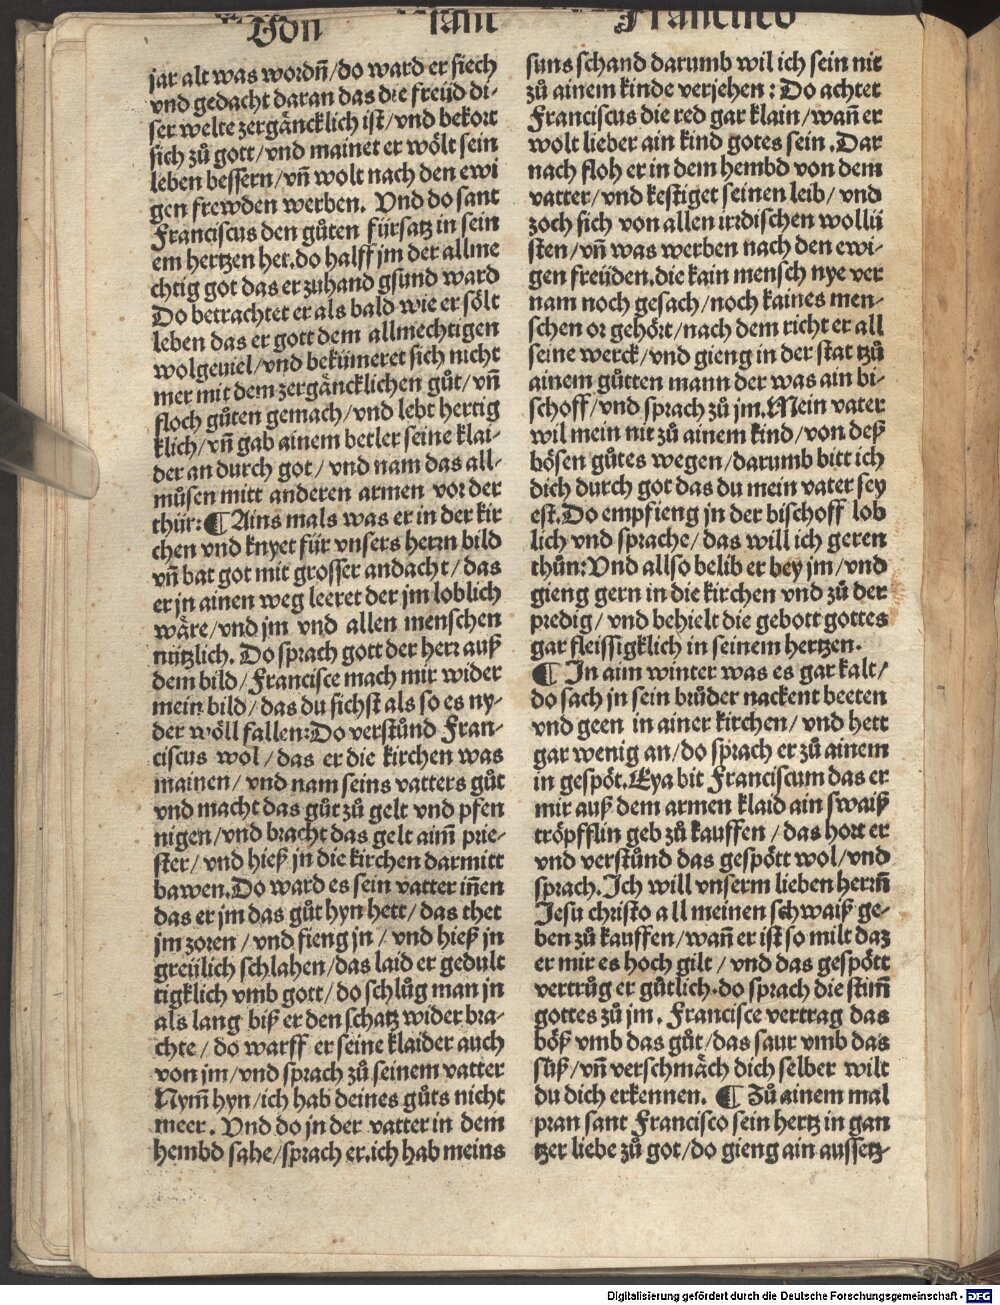 Von sant Francisco
jar alt was wordñ/do ward er siech
vnd gedacht daran das die freüd di-
ser welte zergäncklich ist/vnd bekort
sich zů gott/vnd mainet er wölt sein
leben bessern/vñ wolt nach den ewi
gen frewden werben. Vnd do sant
Franciscus den gůten fürsatz in sein
em hertzen het.do halff jm der allme
chtig got das er zuhand gsund ward
Do betrachtet er als bald wie er sölt
leben das er gott dem allmechtigen
wolgeuiel/vnd bekümeret sich nicht
mer mit dem zergäncklichen gůt/vñ
floch gůten gemach/vnd lebt hertig
klich/vñ gab ainem betler seine klai-
der an durch got/vnd nam das all-
můsen mitt anderen armen vor der
thür:¶ Ains mals was er in der kir
chen vnd knyet für vnsers herrn bild
vñ bat got mit grosser andacht/das
er jn ainen weg leeret der jm loblich
wäre/vnd jm vnd allen menschen
nützlich. Do sprach gott der herr auß
dem bild/Francisce mach mir wider
mein bild/das du sichst als so es ny-
der wöll fallen:Do verstůnd Fran-
ciscus wol/das er die kirchen was
mainen/vnd nam seins vatters gůt
vnd macht das gůt zů gelt vnd pfen
nigen/vnd bracht das gelt aim̃ prie-
ster/vnd hieß jn die kirchen darmitt
bawen.Do ward es sein vatter iñen
das er jm das gůt hyn hett/das thet
jm zoren/vnd fieng jn/vnd hieß jn
greülich schlahen/das laid er gedult
tigklich vmb gott/do schlůg man jn
als lang biß er den schatz wider bra-
chte/do warff er seine klaider auch
von jm/vnd sprach zů seinem vatter
Nym̃ hyn/ich hab deines gůts nicht
meer. Vnd do jn der vatter in dem
hembd sahe/sprach er.ich hab meins
suns schand darumb wil ich sein nit
zů ainem kinde verjehen: Do achtet
Franciscus die red gar klain/wañ er
wolt lieber ain kind gotes sein.Dar
nach floh er in dem hembd von dem
vatter/vnd kestiget seinen leib/vnd
zoch sich von allen irrdischen wollü
sten/vñ was werben nach den ewi-
gen freüden.die kain mensch nye ver
nam noch gesach/noch kaines men-
schen or gehört/nach dem richt er all
seine werck/vnd gieng in der stat tzů
ainem gůtten mann der was ain bi-
schoff/vnd sprach zů jm.Mein vater
wil mein nit zů ainem kind/von deß
bösen gůtes wegen/darumb bitt ich
dich durch got das du mein vater sey
est.Do empfieng jn der bischoff lob
lich vnd sprache/das will ich geren
thůn:Vnd allso belib er bey jm/vnd
gieng gern in die kirchen vnd zů der
predig/vnd behielt die gebott gottes
gar fleissigklich in seinem hertzen.
¶ In aim winter was es gar kalt/
do sach jn sein brůder nackent beeten
vnd geen in ainer kirchen/vnd hett
gar wenig an/do sprach er zů ainem
in gespöt.Eya bit Franciscum das er
mir auß dem armen klaid ain swaiß
tröpfflin geb zů kauffen/das hort er
vnd verstůnd das gespött wol/vnd
sprach.Ich will vnserm lieben herrñ
Jesu christo all meinen schwaiß ge-
ben zů kauffen/wañ er ist so milt daz
er mir es hoch gilt/vnd das gespött
vertrůg er gůtlich.do sprach die stim̃
gottes zů jm. Francisce vertrag das
böß vmb das gůt/das saur vmb das
süß/vñ verschmäch dich selber wilt
du dich erkennen. ¶ Zů ainem mal
pran sant Francisco sein hertz in gan
tzer liebe zů got/do gieng ain aussetz-
Digitalisierung gefördert durch die Deutsche Forschungsgemeinschaft - DFG